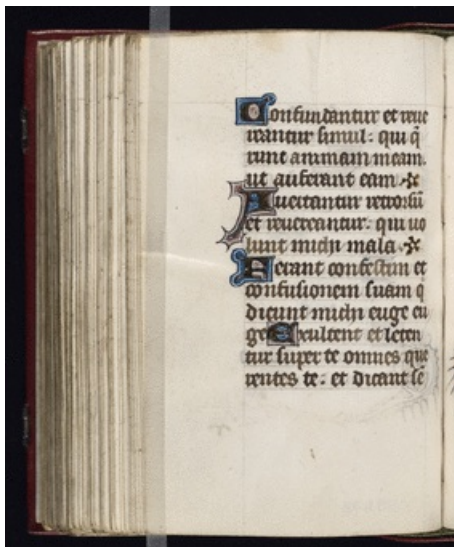 Confundantur et reue
reantur simul: qui q̄
runt animam meam.
ut auferant eam
Auertantur retrorsū
et reuereantur: qui uo
lunt michi mala
Ferant confestim et
confusionem suam q
dicunt michi euge eu
ge Exultent et leten
tur super te omnes que
rentes te: et dicant sē